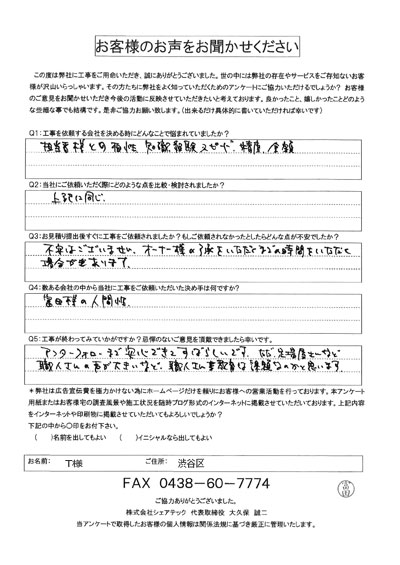 お客様のお声をお聞かせください
この度は弊社に工事をご用命いただき、誠にありがとうございました。世の中には弊社の存在やサービスをご存知ないお客
様が沢山いらっしゃいます。その方たちに弊社をよく知っていただくためのアンケートにご協力いただけるでしょうか? お客
様のご意見をお聞かせいただき今後の活動に反映させていただきたいと考えております。良かったこと、嬉しかったことどのよう
な些細な事でも結構です。是非ご協力お願い致します。(出来るだけ具体的に書いていただければ幸いです)
Q1:工事を依頼する会社を決める時にどんなことで悩まれていましたか?
担当者様との相性 知識 経験 スピード、精度、金額
Q2:当社にご依頼いただく際にどのような点を比較・検討されましたか?
上記に同じ。
Q3:お見積り提出後すぐに工事をご依頼されましたか?もしご依頼されなかったとしたらどんな点が不安でしたか?
不安はございません。オーナー様の了承をいただくまでの時間をいただく
場合があります。
Q4:数ある会社の中から当社に工事をご依頼いただいた決め手は何ですか?
富田様の人間性。
Q5:工事が終わってみていかがですか?忌憚のないご意見を頂戴できましたら幸いです。
アフターフォローまで安心できてすばらしいです。
職人さんの声が大きいなど、職人さん
課題なのかと思います
*弊社は広告宣伝費を極力かけない為にホームページだけを頼りにお客様への営業活動を行っております。本アンケート
用紙またはお客様宅の調査風景や施工状況を随時ブログ形式のインターネットに掲載させていただいております。上記内容
をインターネットや印刷物に掲載させていただいてもよろしいでしょうか?
下記の中から〇印をお付け下さい。
( )名前を出してもよい ( )イニシャルなら出してもよい
お名前: T様 ご住所: 渋谷区
FAX 0438-60-7774
ご協力ありがとうございました。
株式会社シェアテック 代表取締役 大久保 誠二
当アンケートで取得したお客様の個人情報は関係法規に基づき厳正に管理いたします。